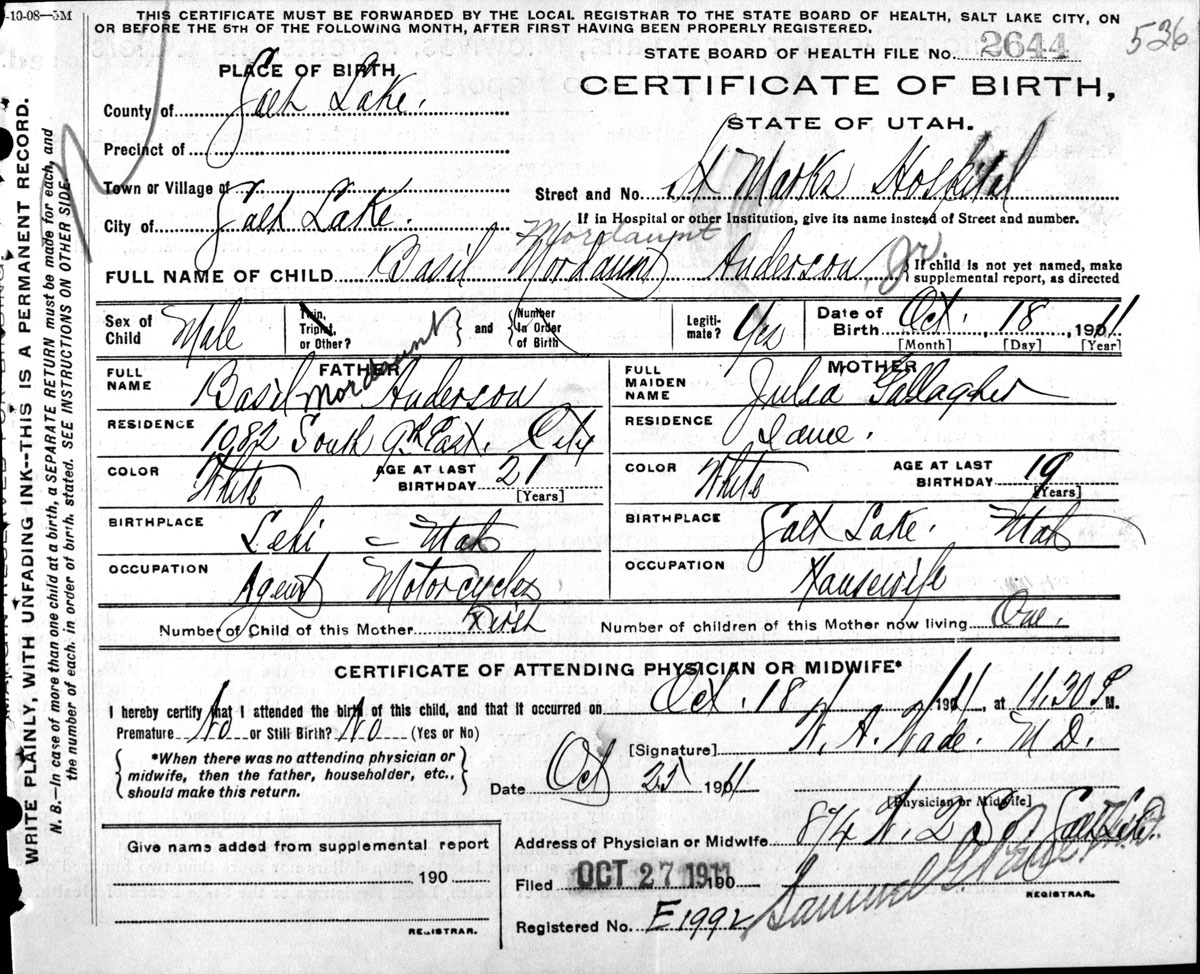 -10-08—3M
THIS CERTIFICATE MUST BE FORWARDED BY THE LOCAL REGISTRAR TO THE STATE BOARD OF HEALTH, SALT LAKE CITY, ON
OR BEFORE THE 5TH OF THE FOLLOWING MONTH, AFTER FIRST HAVING BEEN PROPERLY REGISTERED.
STATE BOARD OF HEALTH FILE NO. 2644
536
PLACE OF BIRTH
CERTIFICATE OF BIRTH,
County of Salt Lake.
STATE OF UTAH.
Precinct of
Town or Village of
Street and No. St Marks Hospital
City of Salt Lake.
If in Hospital or other Institution, give its name instead of Street and number.
Mordaunt
FULL NAME OF CHILD Basil Mordaunt Anderson Jr.
{If child is not yet named, make
supplemental report, as directed
Sex of Child Male
Twin, Triplet, or Other? } and { Number in Order of Birth
Legitimate? Yes
Date of Birth Oct. 18, 1911
[Month] [Day] [Year]
FATHER
FULL NAME Basil Mordaunt Anderson
RESIDENCE 1082 South 9th East. City
COLOR White
AGE AT LAST BIRTHDAY 21
[Years]
BIRTHPLACE Lehi – Utah
OCCUPATION Agent Motorcycles
MOTHER
FULL MAIDEN NAME Julia Gallagher
RESIDENCE Same.
COLOR White
AGE AT LAST BIRTHDAY 19
[Years]
BIRTHPLACE Salt Lake. Utah
OCCUPATION Housewife
Number of Child of this Mother First Number of children of this Mother now living One.
CERTIFICATE OF ATTENDING PHYSICIAN OR MIDWIFE*
I hereby certify that I attended the birth of this child, and that it occurred on Oct. 18 1911, at 11.30 P. M.
Premature No or Still Birth? No (Yes or No)
{ *When there was no attending physician or
midwife, then the father, householder, etc.,
should make this return. }
[Signature] W. A. Wade. M D.
Date Oct 25 1911
[Physician or Midwife]
Address of Physician or Midwife 874 W. 2 So. Salt Lake.
Give name added from supplemental report
190
REGISTRAR.
Filed OCT 27 1911 190
Samuel G.
REGISTRAR.
Registered No. E1992
WRITE PLAINLY, WITH UNFADING INK--THIS IS A PERMANENT RECORD.
N. B.—In case of more than one child at a birth, a SEPARATE RETURN must be made for each, and
the number of each, in order of birth, stated. SEE INSTRUCTIONS ON OTHER SIDE.